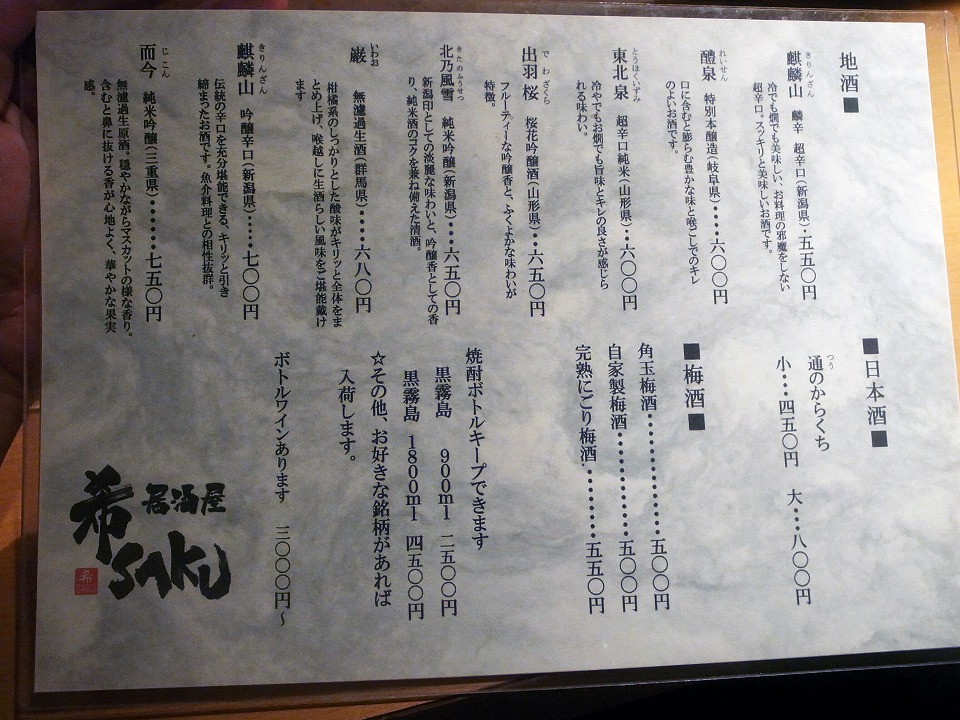 地酒■
麒麟山 麟辛 超辛口(新潟県)・五五〇円
きりんざん
冷でも燗でも美味しい、お料理の邪魔をしない
超辛口。スッキリと美味しいお酒です。
醴泉 特別本醸造(岐阜県)・・・・六〇〇円
れいせん
口に含むと膨らむ豊かな味と喉ごしでのキレ
のよいお酒です。
東北泉 超辛口純米(山形県)・・六〇〇円
とうほくいずみ
冷やでもお燗でも旨味とキレの良さが感じら
れる味わい。
出羽桜 桜花吟醸酒(山形県)・・六五〇円
でわざくら
フルーティーな吟醸香と、ふくよかな味わいが
特徴。
北乃風雪 純米吟醸(新潟県)・・・六五〇円
きたのふうせつ
新潟印としての淡麗な味わいと、吟醸香としての香
り、純米酒のコクを兼ね備えた清酒。
巌 無濾過生酒(群馬県)・・・・六八〇円
いわお
柑橘系のしっかりとした酸味がキリッと全体をま
とめ上げ、喉越しに生酒らしい風味をご堪能戴け
ます
麒麟山 吟醸辛口(新潟県)・・・・・七〇〇円
きりんざん
伝統の辛口を充分堪能できる、キリッと引き
締まったお酒です。魚介料理との相性抜群。
而今 純米吟醸(三重県)・・・・・・七五〇円
じこん
無濾過生原酒。穏やかながらマスカットの様な香り。
口に含むと鼻に抜ける香が心地よく、華やかな果実
感。
■日本酒■
通のからくち
つう
小・・・四五〇円 大・・・八〇〇円
■梅酒■
角玉梅酒・・・・・・・・・・・・五〇〇円
自家製梅酒・・・・・・・・・・・五〇〇円
完熟にごり梅酒・・・・・・・・・五五〇円
焼酎ボトルキープできます
黒霧島 900ml 二五〇〇円
黒霧島 1800ml 四五〇〇円
☆その他、お好きな銘柄があれば
入荷します。
ボトルワインあります 三〇〇〇円〜
居酒屋
希SAKU
希